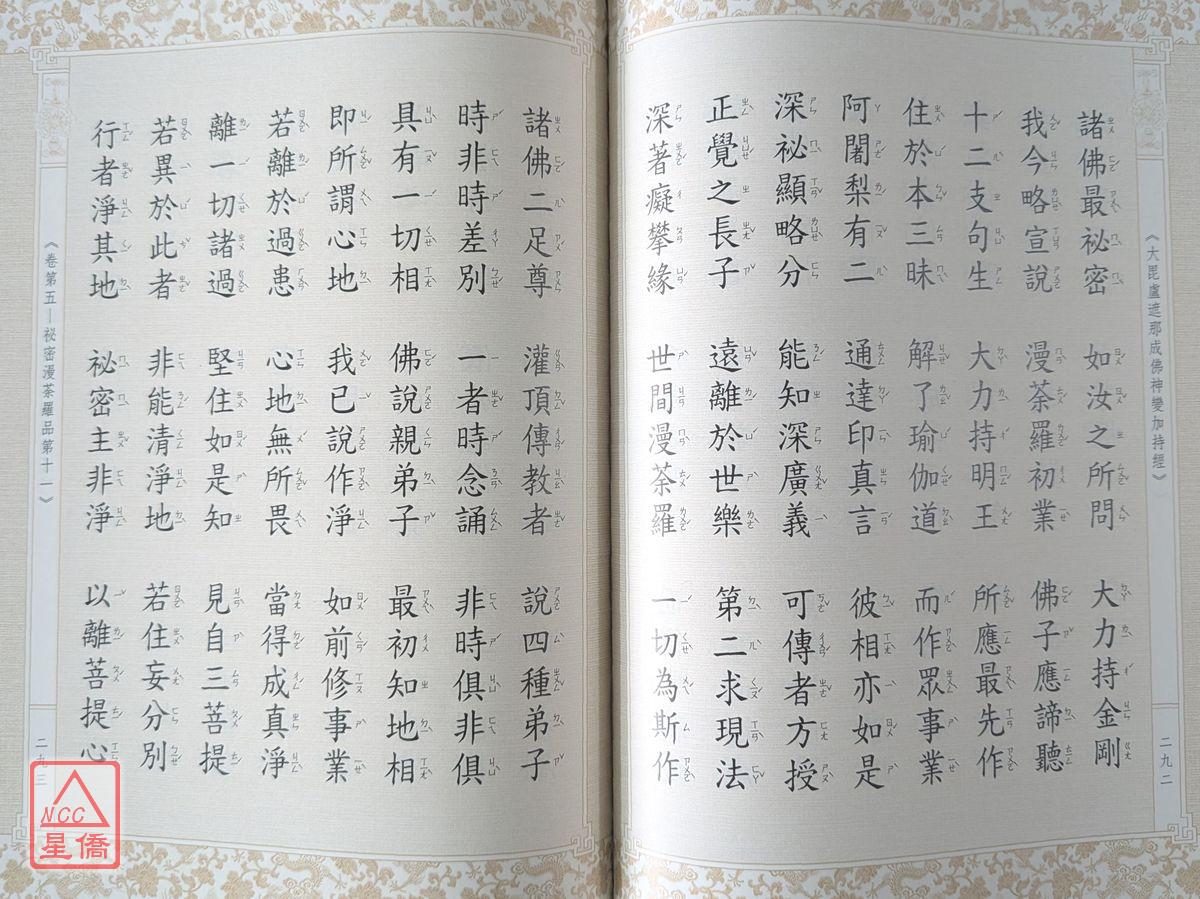 《大毘盧遮那成佛神變加持經》
諸佛最祕密 如汝之所問 大力持金剛
我今略宣說 漫荼羅初業 佛子應諦聽
十二支句生 大力持明王 所應最先作
住於本三昧 解了瑜伽道 而作眾事業
阿闍梨有二 通達印真言 彼相亦如是
深祕顯略分 能知深廣義 可傳者方授
正覺之長子 遠離於世樂 第二求現法
深著癡攀緣 世間漫荼羅 一切為斯作
二九二
諸佛二足尊 灌頂傳教者 說四種弟子
時非時差別 一者時念誦 非時俱非俱
具有一切相 佛說親弟子 最初知地相
即所謂心地 我已說作淨 如前修事業
若離於過患 心地無所畏 當得成真淨
離一切諸過 堅住如是知 見自三菩提
若異於此者 非能清淨地 若住妄分別
行者淨其地 祕密主非淨 以離菩提心
《卷第五—祕密漫荼羅品第十一》
二九三
NCC
星僑